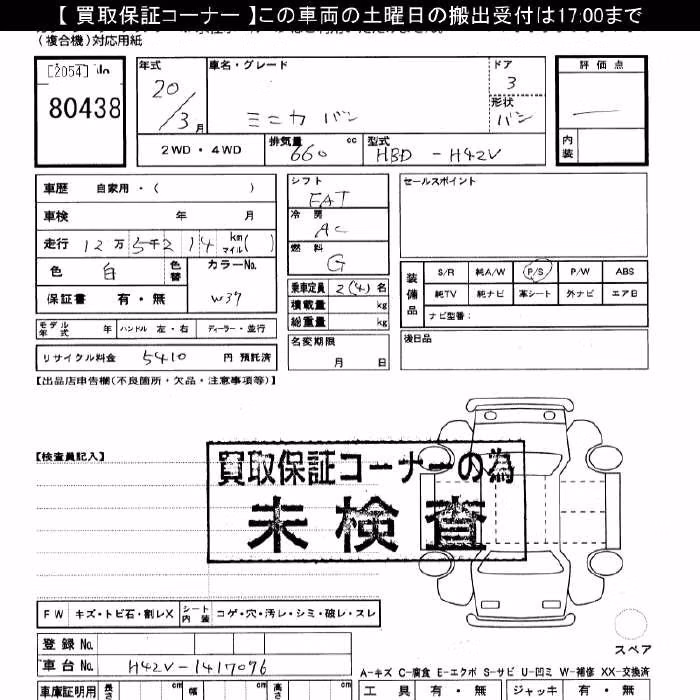 【 買取保証コーナー 】この車両の土曜日の搬出受付は17:00まで
(複合機)対応用紙
[2054]
80438
年式 20/3月
車名・グレード ミニカ バン
ドア 3
形状 バン
評価点 —
内装
2WD・4WD
排気量 660 cc
型式 HBD - H42V
車歴 自家用・( )
車検 年 月
走行 12万5千214 km マイル( )
色 白 色替
カラーNo. W37
保証書 有・無
シフト FAT
冷房 AC
燃料 G
乗車定員 2(4)名
積載量 kg
総重量 kg
セールスポイント
装備品
S/R 純A/W P/S P/W ABS
純TV 純ナビ 革シート 外ナビ エアB
ナビ型番:
モデル年式 年 ハンドル 左・右 ディーラー・並行
リサイクル料金 5410 円 預託済
名変期限 月 日
後日品
【出品店申告欄(不良箇所・欠品・注意事項等)】
【検査員記入】
買取保証コーナーの為
未検査
FW キズ・トビ石・割レX シート内装 コゲ・穴・汚レ・シミ・破レ・スレ
登録No.
車台No. H42V-1417096
スペア
A-キズ C-腐食 E-エクボ S-サビ U-凹ミ W-補修 XX-交換済
車庫証明用 長さ cm 幅 cm 高さ cm
工具 有・無 ジャッキ 有・無